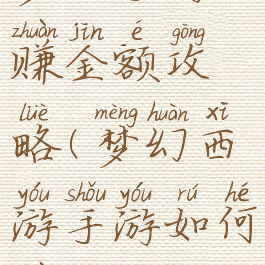 zhuàn jīn é gōng
赚金额攻
lüè mèng huàn xī
略(梦幻西
yóu shǒu yóu rú hé
游手游如何